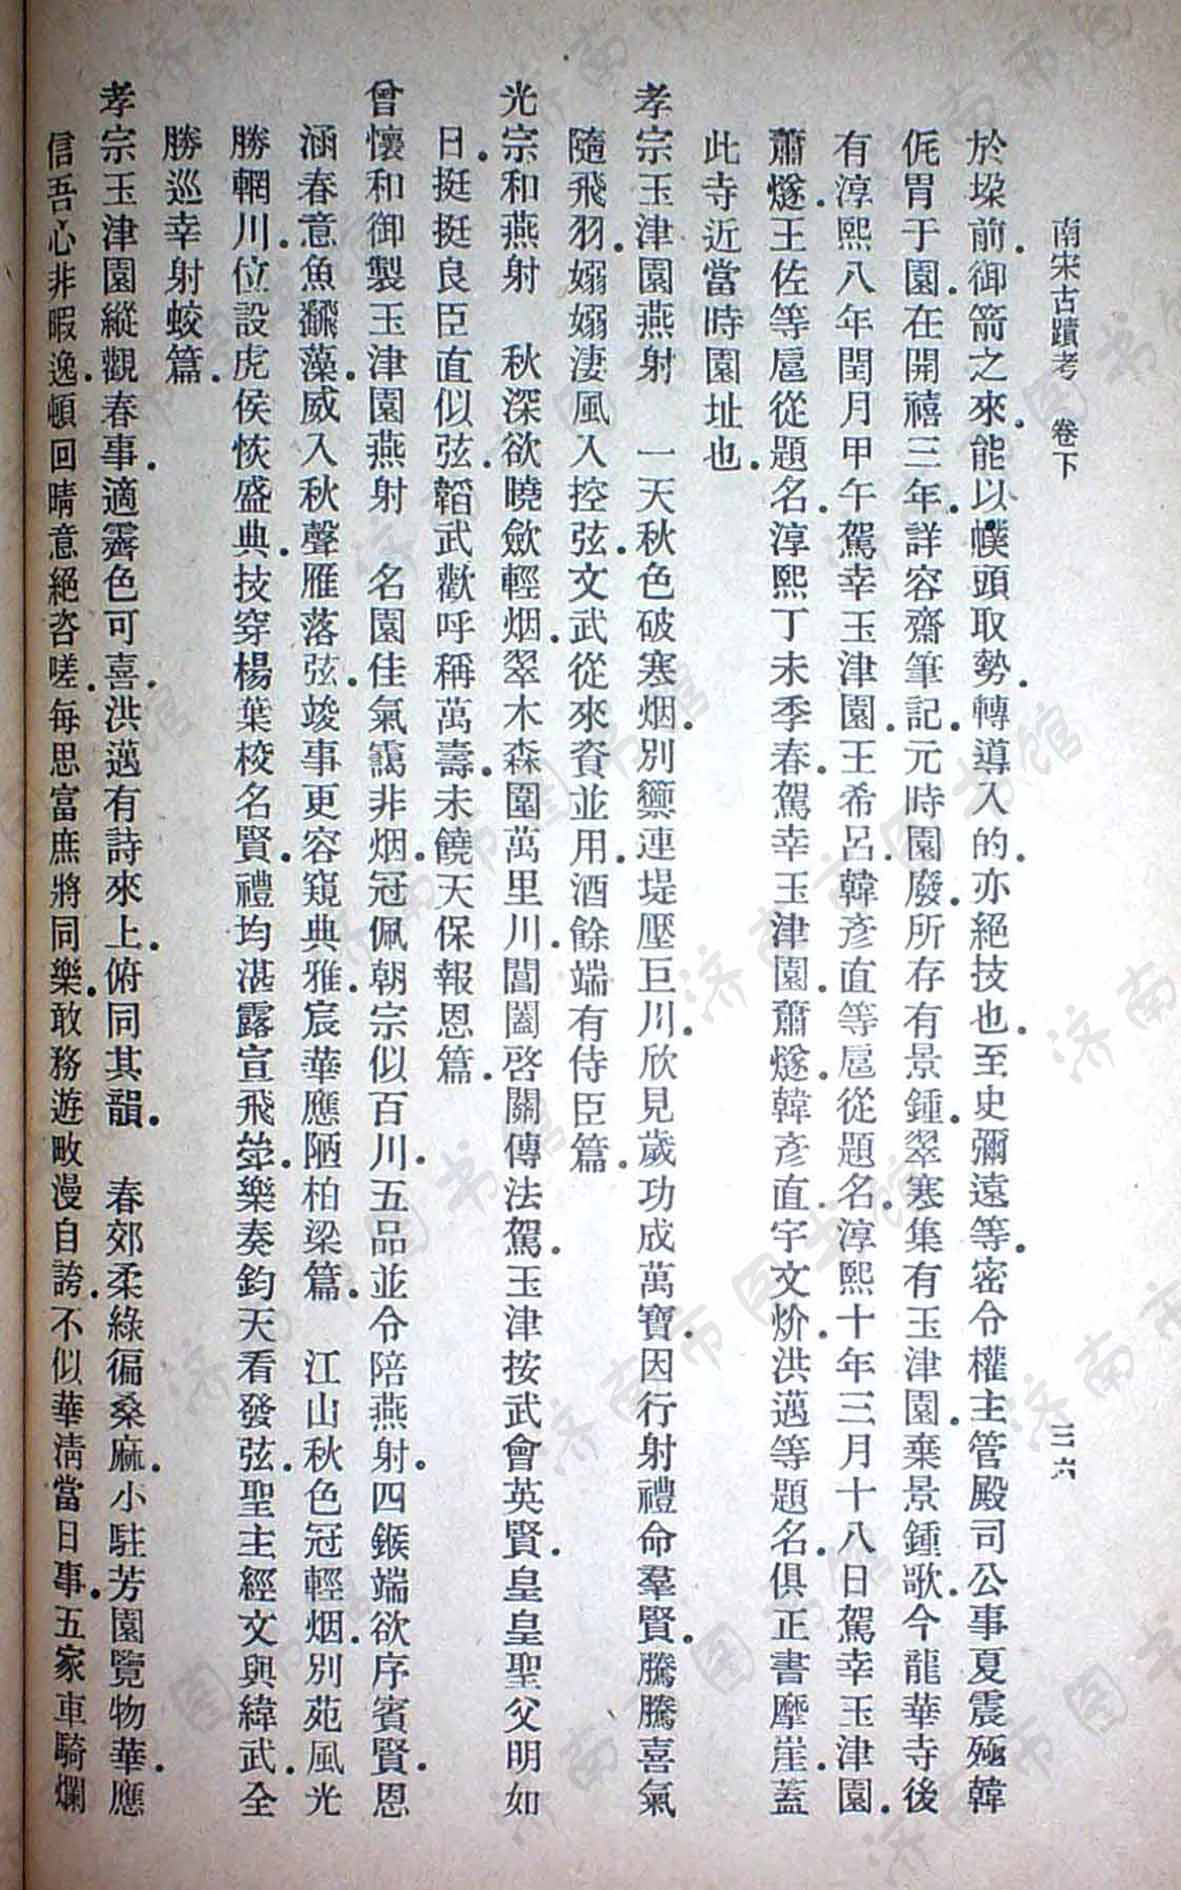 南宋古蹟考　卷下　三六
於垜前。御箭之來。能以幞頭取勢。轉導入的。亦絕技也。至史彌遠等。密令權主管殿司公事夏震殛韓
侂胄于園。在開禧三年。詳容齋筆記。元時園廢。所存有景鍾。翠寒集有玉津園。棄景鍾歌。今龍華寺後
有淳熙八年閏月甲午。駕幸玉津園。王希呂。韓彥直等扈從題名。淳熙十年三月十八日。駕幸玉津園。
蕭燧。王佐等扈從題名。淳熙丁未季春。駕幸玉津園。蕭燧。韓彥直。宇文炌。洪邁等題名。俱正書摩崖。蓋
此寺近當時園址也。
孝宗玉津園燕射　一天秋色破寒烟。別籞連堤壓巨川。欣見歲功成萬寶。因行射禮命羣賢。騰騰喜氣
隨飛羽。嫋嫋淒風入控弦。文武從來資並用。酒餘端有侍臣篇。
光宗和燕射　秋深欲曉歛輕烟。翠木森圍萬里川。閶闔啓關傳法駕。玉津按武會英賢。皇皇聖父明如
日。挺挺良臣直似弦。韜武歡呼稱萬壽。未饒天保報恩篇。
曾懷和御製玉津園燕射　名園佳氣靄非烟。冠佩朝宗似百川。五品並令陪燕射。四鍭端欲序賓賢。恩
涵春意魚翻藻。威入秋聲雁落弦。竣事更容窺典雅。宸華應陋柏梁篇。　江山秋色冠輕烟。別苑風光
勝輞川。位設虎侯恢盛典。技穿楊葉校名賢。禮均湛露宣飛斝。樂奏鈞天看發弦。聖主經文與緯武。全
勝巡幸射蛟篇。
孝宗玉津園縱觀春事。適霽色可喜。洪邁有詩來上。俯同其韻。　春郊柔綠徧桑麻。小駐芳園覽物華。應
信吾心非暇逸。頓回晴意絕咨嗟。每思富庶將同樂。敢務遊畋漫自誇。不似華淸當日事。五家車騎爛